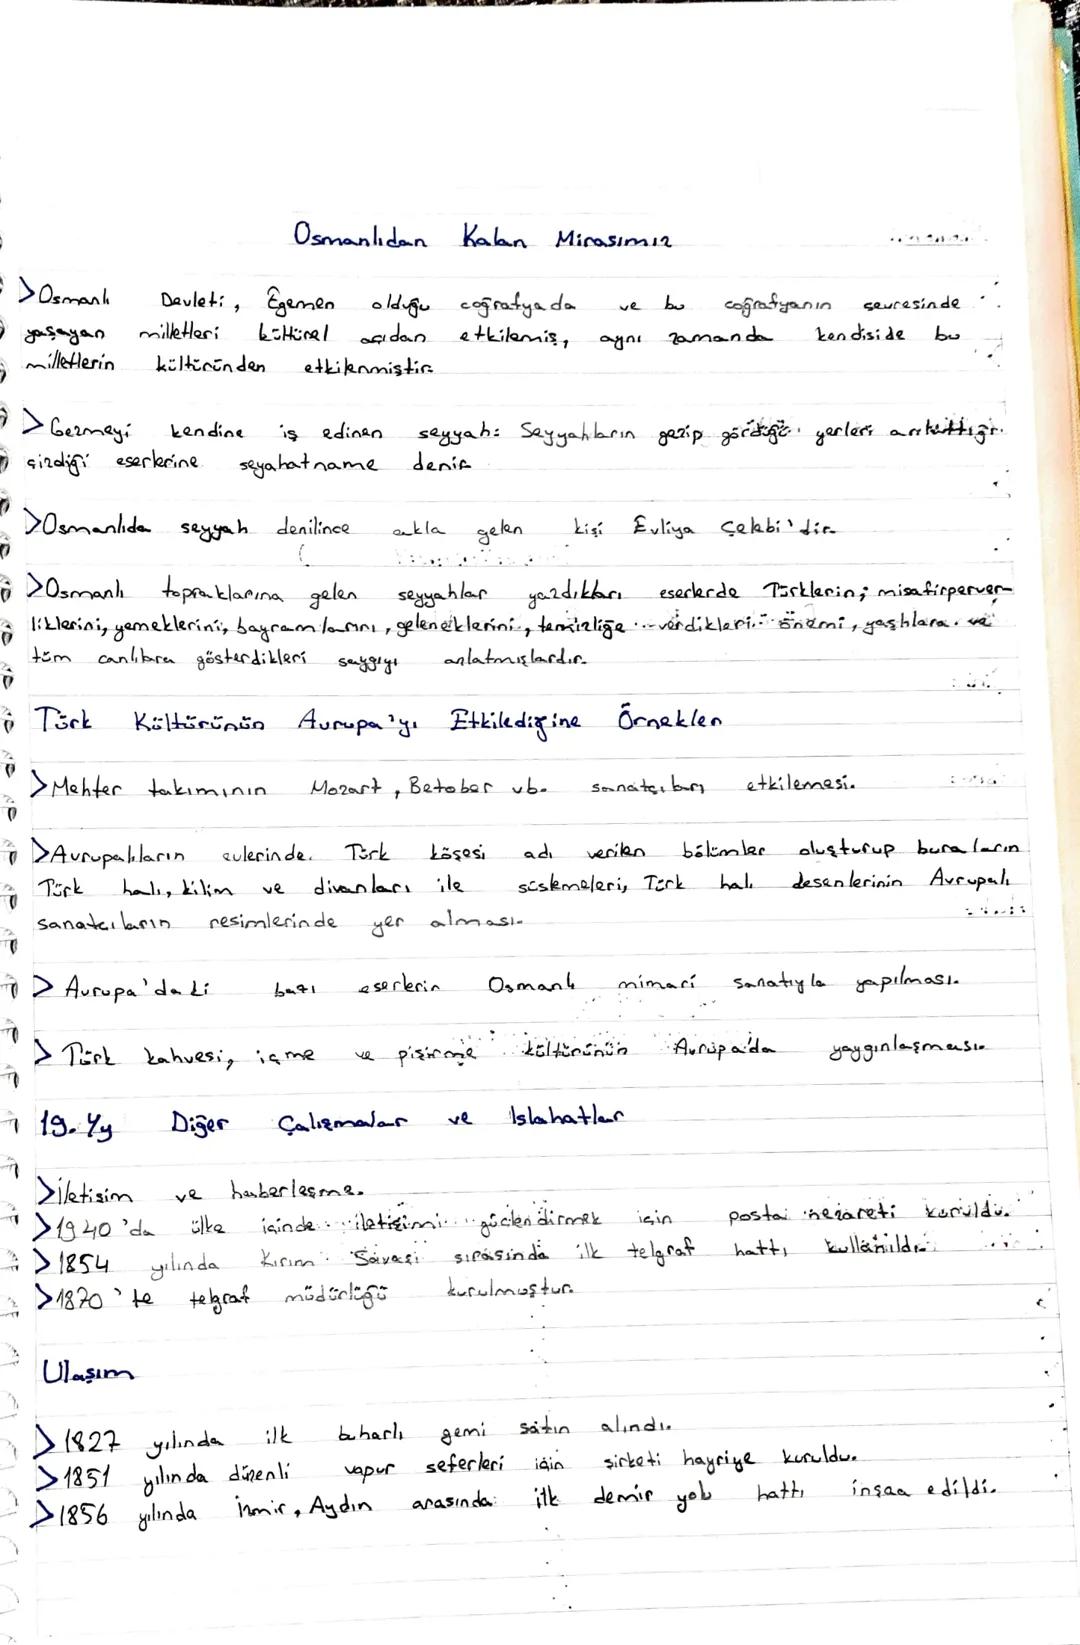 Osmanlıdan Kalan Mirasımız
>Osmanlı Devleti, Egemen olduğu coğrafyada ve bu coğrafyanın çevresinde
yaşayan milletleri kültürel açıdan etkilemiş, aynı zamanda kendiside bu
milletlerin kültüründen etkilenmiştir.
>Gezmeyi kendine iş edinen seyyah: Seyyahların gezip gördüğü yerleri
çizdiği eserlerine seyahatname denir
>Osmanlıda seyyah denilince akla gelen kişi Evliya Çelebi'dir.
>Osmanlı topraklarına gelen seyyahlar yazdıkları eserlerde Türklerin; misafirperver-
liklerini, yemeklerini, bayramlarını, geleneklerini, temizliğe verdikleri önemi, yaşlılara ve
tüm canlılara gösterdikleri saygıyı anlatmışlardır.
Türk Kültürünün Avrupa'yı Etkilediğine Örnekler
>Mehter takımının Mozart, Betober vb. sanatçıları etkilemesi.
>Avrupalıların evlerinde Türk köşesi adı verilen bölümler oluşturup buraların
Türk halı, kilim ve divanları ile süslemeleri, Türk halı desenlerinin Avrupalı
sanatcıların resimlerinde yer alması.
> Avrupa'daki bazı eserlerin Osmanlı mimari sanatıyla yapılması.
> Türk kahvesi, içme ve pişirme kültürünün Avrupa'da yaygınlaşması.
19. Yy Diğer Çalışmalar ve Islahatlar
>İletişim ve haberleşme.
>1940'da ülke içinde iletişimi güçlendirmek için posta nezareti kuruldu.
>1854 yılında Kırım Savaşı sırasında ilk telgraf hattı kullanıldı.
>1870'te telgraf müdürlüğü kurulmuştur.
Ulaşım
>1827 yılında ilk buharlı gemi satın alındı.
>1851 yılında düzenli vapur seferleri için şirketi hayriye kuruldu.
>1856 yılında İzmir, Aydın arasında ilk demir yolu hattı inşaa edildi.